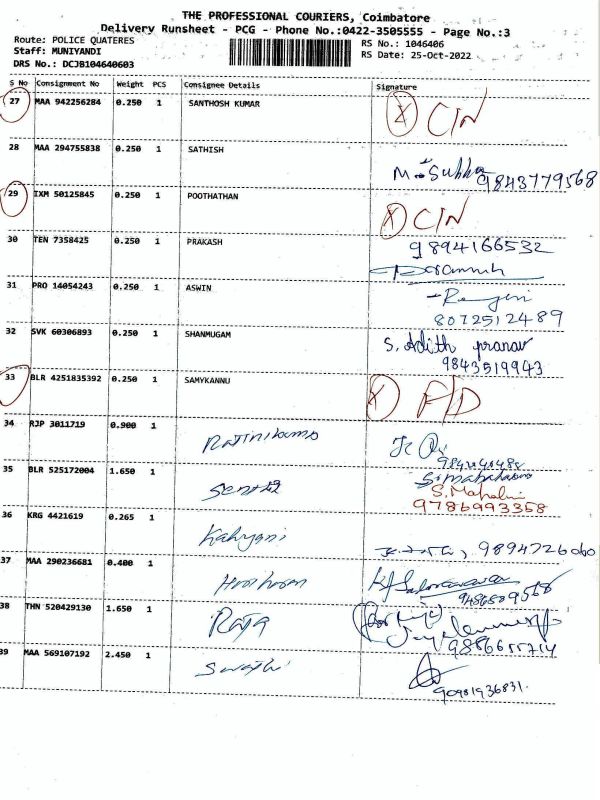 THE PROFESSIONAL COURIERS, Coimbatore
Delivery Runsheet - PCG - Phone No.:0422-3505555 - Page No.:3
Route: POLICE QUATERES RS No.: 1046406
Staff: MUNIYANDI RS Date: 25-Oct-2022
DRS No.: DCJB104640603
S No Consignment No Weight PCS Consignee Details Signature
27 MAA 942256284 0.250 1 SANTHOSH KUMAR X C/N
28 MAA 294755838 0.250 1 SATHISH
9843779568
29 IXM 50125845 0.250 1 POOTHATHAN X C/N
30 TEN 7358425 0.250 1 PRAKASH 9894166532
31 PRO 14054243 0.250 1 ASWIN
8072512489
32 SVK 60306893 0.250 1 SHANMUGAM S. Adith pranav
9843519943
33 BLR 4251835392 0.250 1 SAMYKANNU X F/D
34 RJP 3011719 0.900 1
35 BLR 525172004 1.650 1
9786993358
36 KRG 4421619 0.265 1 Kalyani
9894726060
37 MAA 290236681 0.400 1
38 THN 520429130 1.650 1 Raja
9886655714
39 MAA 569107192 2.450 1 Swathi